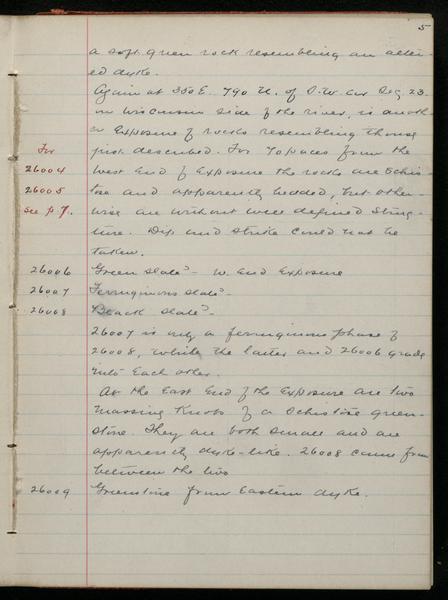 5
a soft green rock resembling an alter-
ed dyke.
Again at 350 E. 790 N. of S.W. cor Sec 23.
on Wisconsin side of the river, is anoth-
er exposure of rocks resembling those
For just described. For 70 paces from the
26004 west end of exposure the rocks are schis-
26005 tose and apparently bedded, but other-
see p 7. wise are without well defined struc-
ture. Dip and strike could not be
taken.
26006 Green slate? - W. End Exposure
26007 Ferruginous slate? -
26008 Black slate? -
26007 is only a ferruginous phase of
26008, while the latter and 26006 grade
into each other.
At the East End of the Exposure are two
massing knobs of a schistose green-
stone. They are both small and are
apparently dyke-like. 26008 came from
between the two
26009 Greenstone from Eastern dyke.